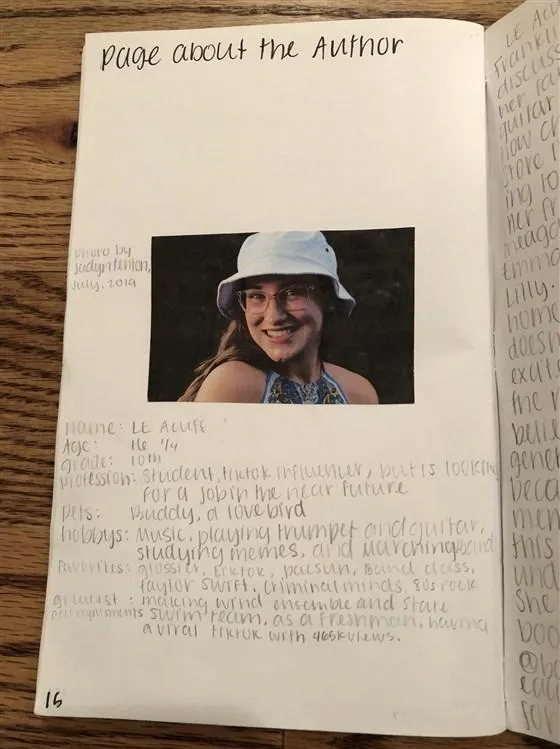 page about the Author
photo by
Jadyn Fenton,
July, 2019
name: LE ACUFF
Age: 16 1/4
grade: 10th
profession: student, tiktok influencer, but is looking
for a job in the near future
pets: Buddy, a lovebird
hobbys: Music, playing trumpet and guitar,
studying memes, and marching band
favorites: glossier, tiktok, pacsun, Band class,
taylor swift, criminal minds, 80s rock
greatest : making wind ensemble and state
accomplisments swim team, as a freshman, having
a viral tiktok with 465k views.
15
LE AC
Frankli
discus
her
guitar
How
store
ing to
Her
meag
Emma
Lilly
home
doesn
excit
the
belie
gener
beca
mem
this
und
she
boo